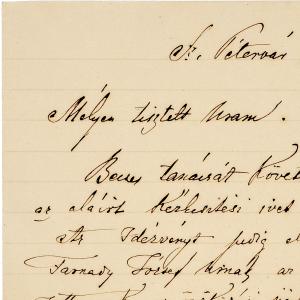 Sz. Pétervár
Mélyen tisztelt Uram.
Becses tanácsát Követ
az aláírt Kézbesítési ívet
Az Idézvényt pedig el
Tarnady József úrnak, az